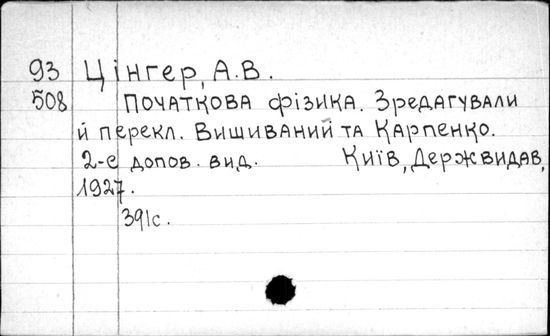 93 Цінгер, А.В.
508 Початкова фізика. Зредагували
й перекл. Вишиваний та Карпенко.
2-е допов. вид. Київ, Держвидав,
1927.
391с.